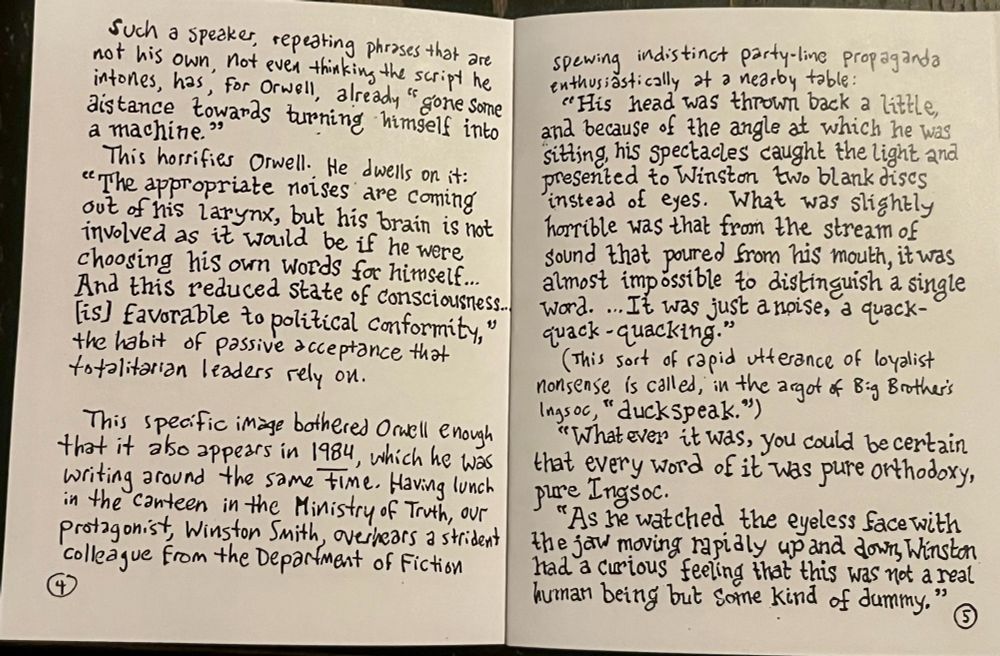 Such a speaker, repeating phrases that are
not his own, not even thinking the script he
intones, has, for Orwell, already "gone some
distance towards turning himself into
a machine."
This horrifies Orwell. He dwells on it:
"The appropriate noises are coming
out of his larynx, but his brain is not
involved as it would be if he were
choosing his own words for himself...
And this reduced state of consciousness...
[is] favorable to political conformity,"
the habit of passive acceptance that
totalitarian leaders rely on.
This specific image bothered Orwell enough
that it also appears in 1984, which he was
writing around the same time. Having lunch
in the canteen in the Ministry of Truth, our
protagonist, Winston Smith, overhears a strident
colleague from the Department of Fiction
4
spewing indistinct party-line propaganda
enthusiastically at a nearby table:
"His head was thrown back a little,
and because of the angle at which he was
sitting, his spectacles caught the light and
presented to Winston two blank discs
instead of eyes. What was slightly
horrible was that from the stream of
sound that poured from his mouth, it was
almost impossible to distinguish a single
word. ...It was just a noise, a quack-
quack-quacking."
(This sort of rapid utterance of loyalist
nonsense is called, in the argot of Big Brother's
Ingsoc, "duckspeak.")
"Whatever it was, you could be certain
that every word of it was pure orthodoxy,
pure Ingsoc.
"As he watched the eyeless face with
the jaw moving rapidly up and down, Winston
had a curious feeling that this was not a real
human being but some kind of dummy."
5